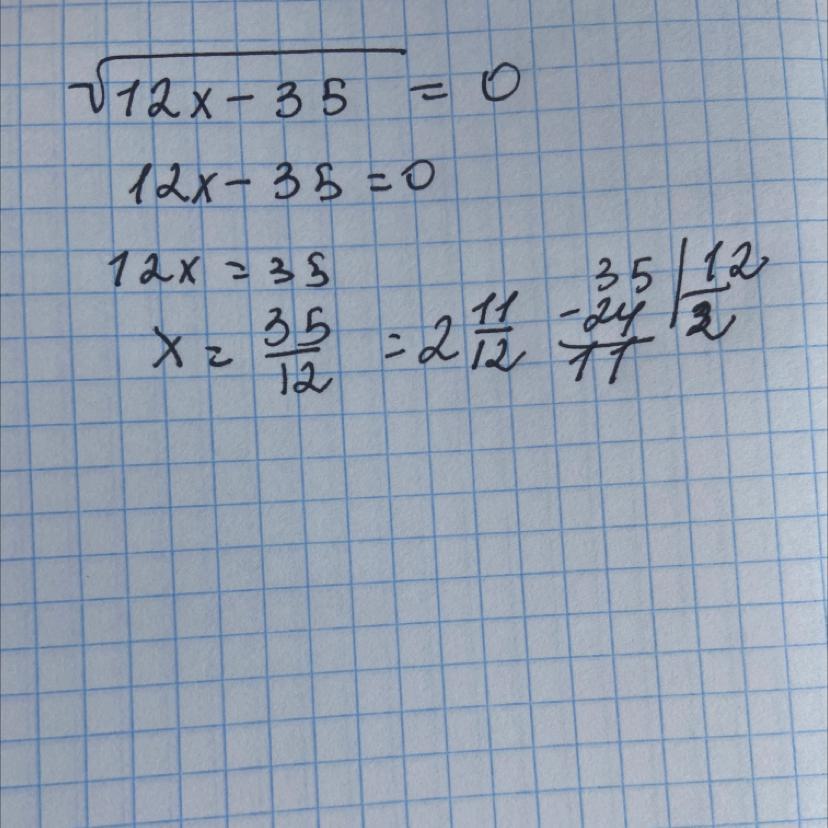 √12x - 35 = 0
12x - 35 = 0
12x = 35
x = 35/12 = 2 11/12
35 | 12
-24 | 2
11